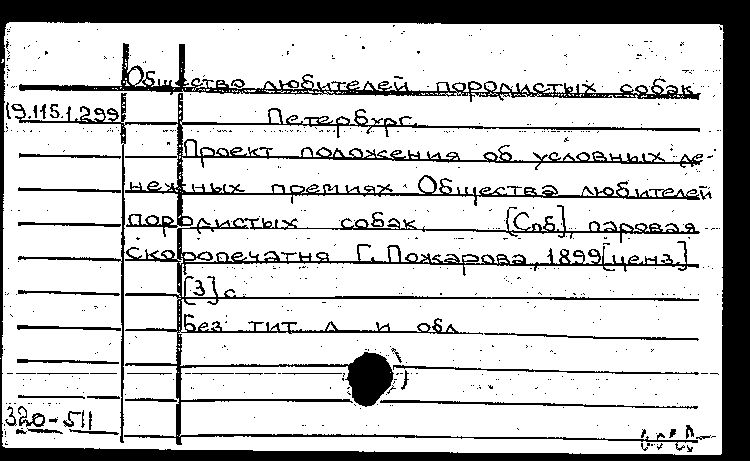 Общество любителей породистых собак.
19.115.1.299
Петербург.
Проект положения об условных де-
нежных премиях Общества любителей
породистых собак. [Спб], паровая
скоропечатня Г. Пожарова, 1899 [ценз.]
[3] с.
Без тит. л. и обл.
320-511